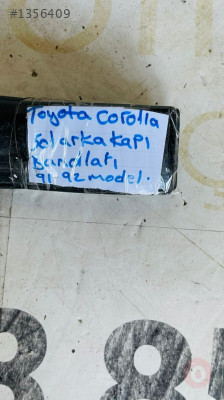 #1356409
Toyota Corolla
Sol arka kapı
bandları
91-92 model.